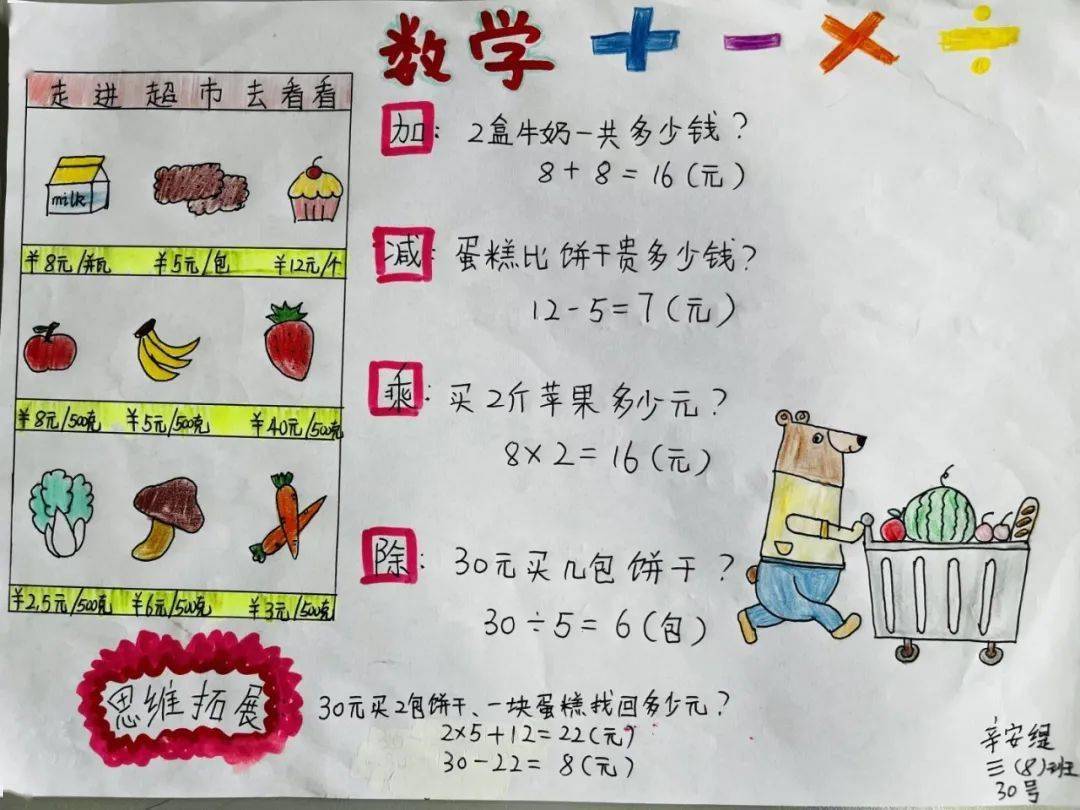 数学 + - × ÷
走进超市去看看
milk
¥8元/瓶 ¥5元/包 ¥12元/个
¥8元/500克 ¥5元/500克 ¥40元/500克
¥2.5元/500克 ¥6元/500克 ¥3元/500克
加: 2盒牛奶一共多少钱?
8+8=16(元)
减: 蛋糕比饼干贵多少钱?
12-5=7(元)
乘: 买2斤苹果多少元?
8×2=16(元)
除: 30元买几包饼干?
30÷5=6(包)
思维拓展
30元买2包饼干、一块蛋糕找回多少元?
2×5+12=22(元)
30-22=8(元)
辛安缇
三(8)班
30号